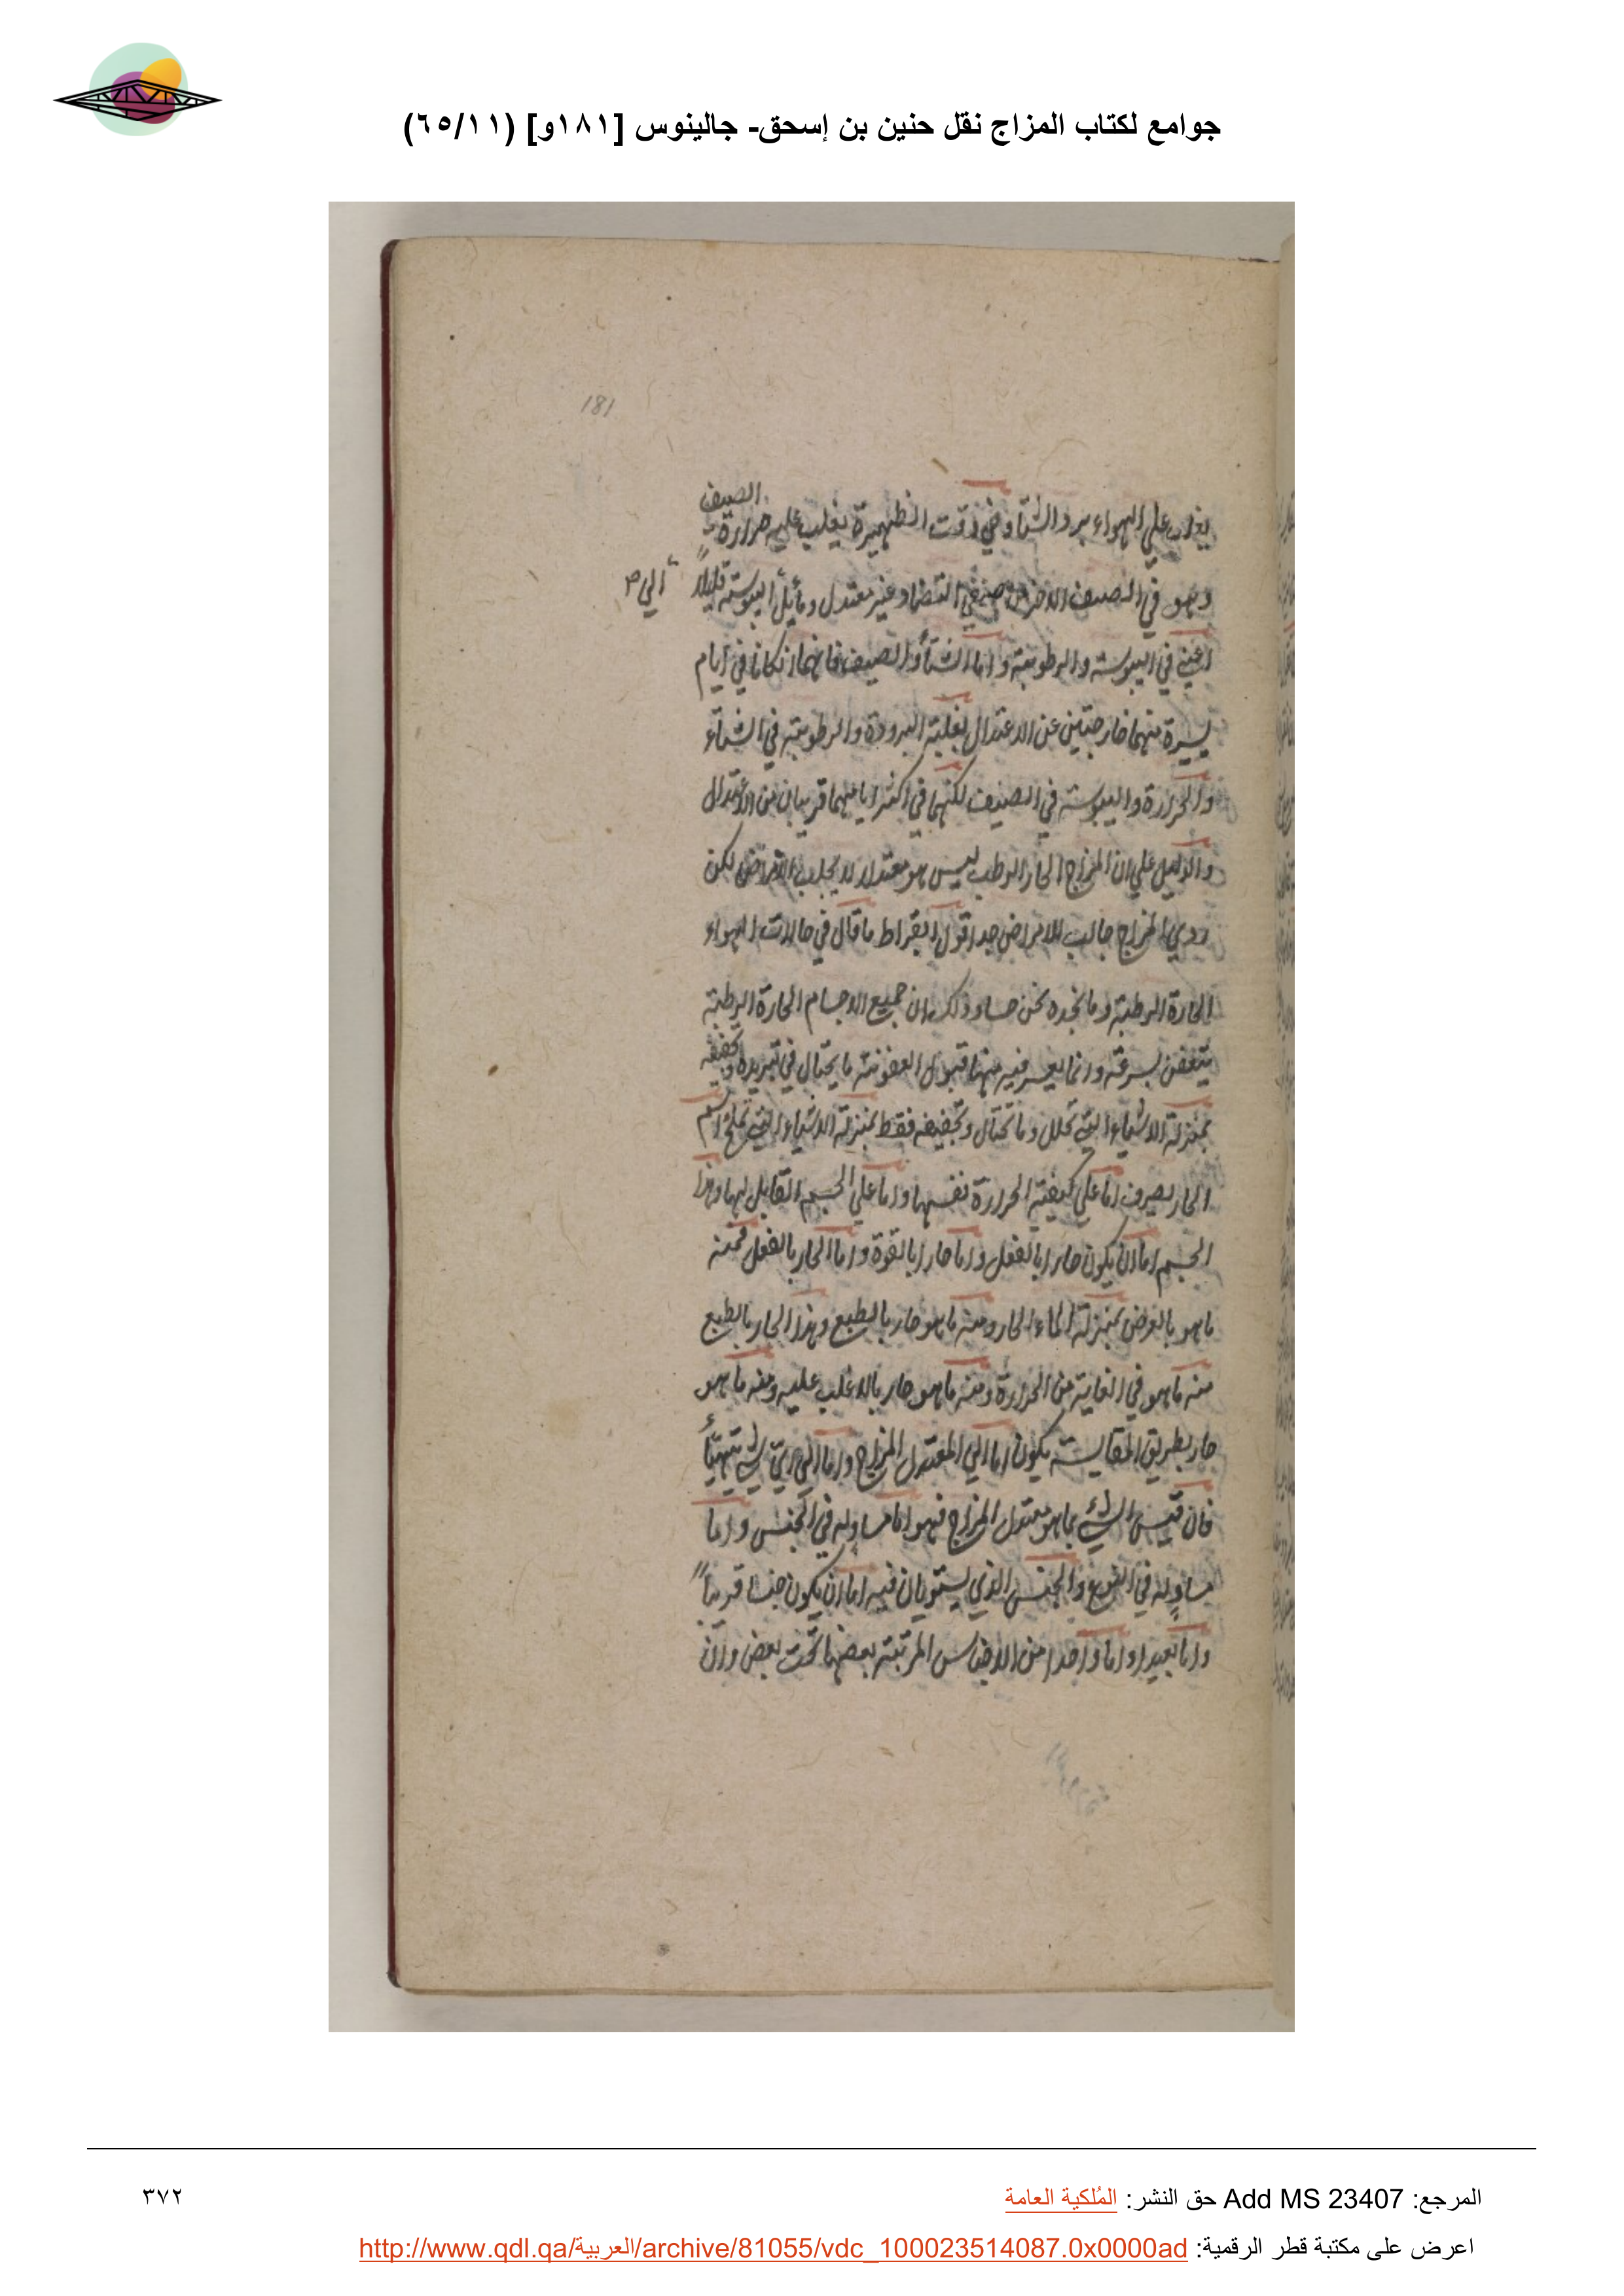 جوامع لكتاب المزاج نقل حنين بن إسحق- جالينوس [١٨١و] (٦٥/١١)
181
الصيف
يغلب علي الهواء برد الشتا وفي وقت الظهيرة يغلب عليه حرارة
وهو في الصيف غير معتدل ومأيل اليبوسته قليلاً
الي
اعني في اليبوسته والرطوبته واما الشتأ والصيف فانهما ان كانا في ايام
يسيرة منهما خارجتين عن الاعتدال لغلبته البرودة والرطوبته في الشتاء
والحرارة واليبوسته في الصيف لكنهما في اكثر ايامهما قريبان من الاعتدال
والدليل علي ان المزاج الحار الرطب ليس هو معتدلا لا يجلب الامراض لكن
ردي المزاج جالب للامراض جدا قول ابقراط ما قال في حالات الهواء
الحارة الرطبته وما نجده نحن حسا وذلك ان جميع الاجسام الحارة الرطبته
يتعفن بسرعته وانما يعسر فيه منها قبول العفونته ما يحتال في تبريده وتجفيفه
بمنزلته الاشياء التي تخلل وما تحتال وتجفيفه فقط بمنزلته الاشياء التي تملح اسم
الحار يصرف اما علي كيفيته الحرارة نفسها واما علي الجسم القابل لها وهذا
الجسم اما ان يكون حارا بالفعل واما حارا بالقوة واما الحار بالفعل فمنه
ما هو بالعرض بمنزلته الماء الحار ومنه ما هو حار بالطبع وهذا الحار بالطبع
منه ما هو في الغاية من الحرارة ومنه ما هو حار بالاغلب عليه ومنه ما هو
حار بطريق المقايسته يكون اما الي المعتدل المزاج واما الي اي شي تهيأ
فان قيس الشي بما هو معتدل المزاج فهو اما مساو له في الجنس واما
مساو له في النوع والجنس الذي يستويان فيه اما ان يكون جنسا قريباً
واما بعيدا واما واحدا من الاجناس المرتبته بعضها تحت بعض وان
المرجع: Add MS 23407 حق النشر: المُلكية العامة
٣٧٢
اعرض على مكتبة قطر الرقمية: http://www.qdl.qa/العربية/archive/81055/vdc_100023514087.0x0000ad